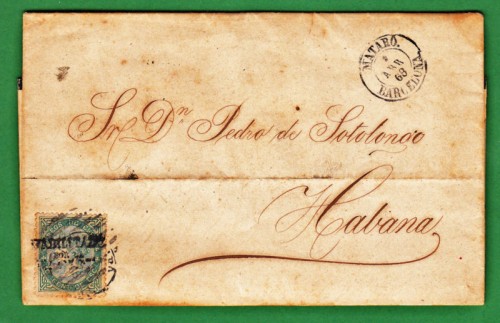 MATARÓ.
ABR
68
BARCELONA
Sr. Dn Pedro de Sotolongo
Habana.